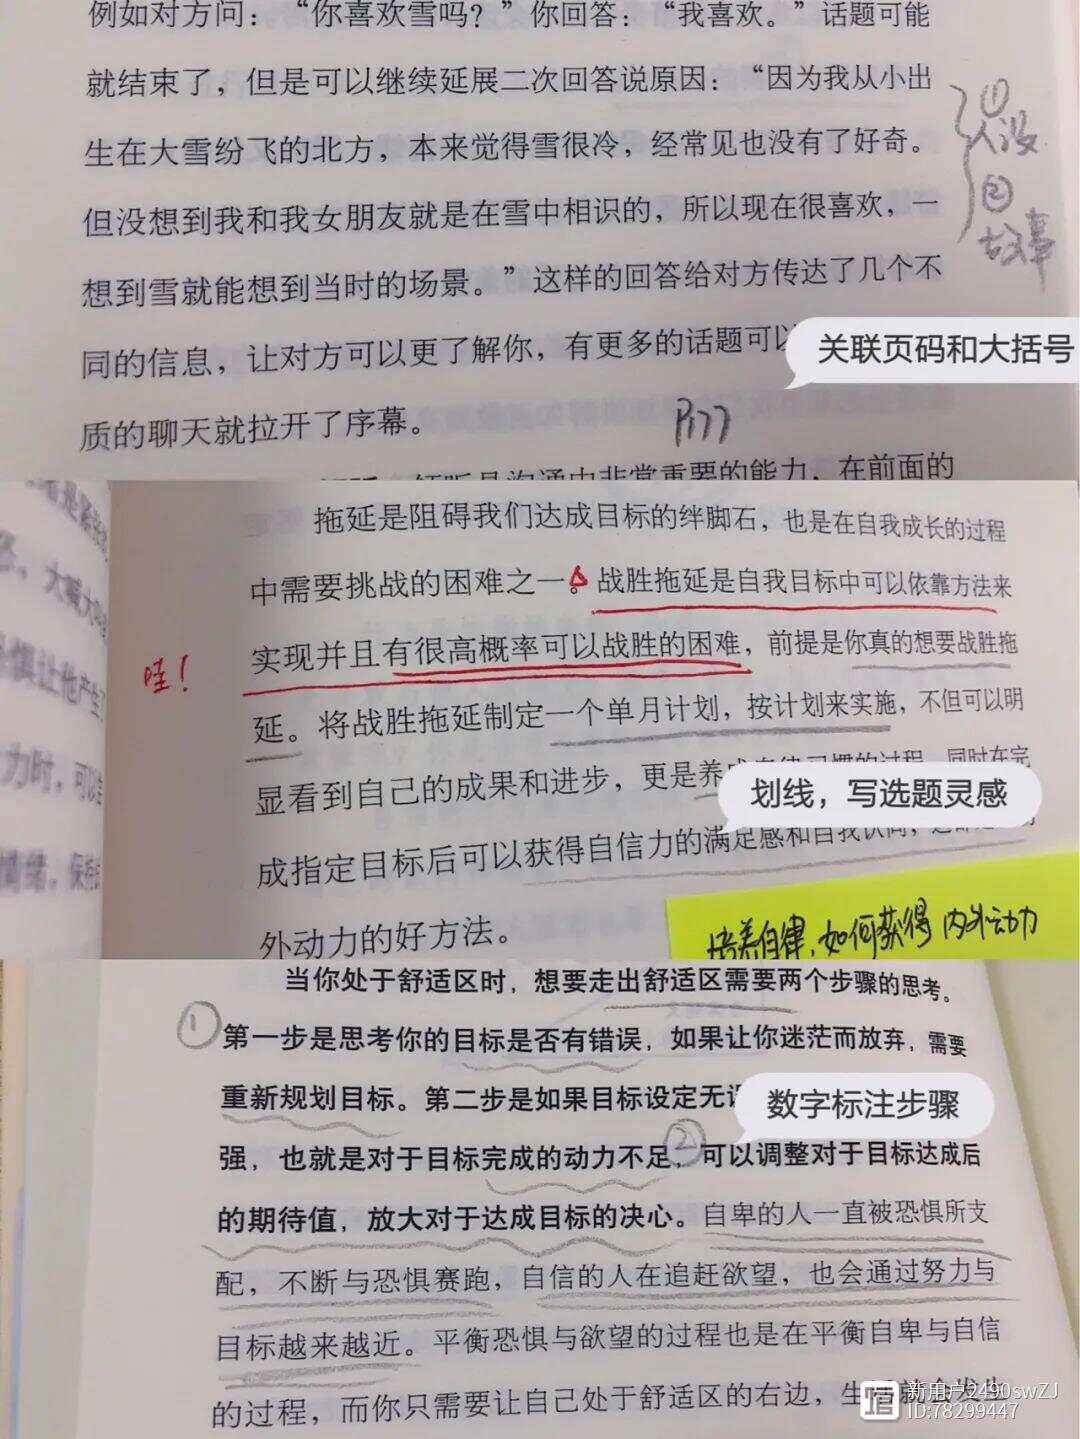 例如对方问：“你喜欢雪吗？”你回答：“我喜欢。”话题可能
就结束了，但是可以继续延展二次回答说原因：“因为我从小出
生在大雪纷飞的北方，本来觉得雪很冷，经常见也没有了好奇。
但没想到我和我女朋友就是在雪中相识的，所以现在很喜欢，一
想到雪就能想到当时的场景。”这样的回答给对方传达了几个不
同的信息，让对方可以更了解你，有更多的话题可以
质的聊天就拉开了序幕。
①
人设
②
故事
关联页码和大括号
P177
倾听是沟通中非常重要的能力，在前面的
拖延是阻碍我们达成目标的绊脚石，也是在自我成长的过程
中需要挑战的困难之一。战胜拖延是自我目标中可以依靠方法来
实现并且有很高概率可以战胜的困难，前提是你真的想要战胜拖
延。将战胜拖延制定一个单月计划，按计划来实施，不但可以明
显看到自己的成果和进步，更是养成自律习惯的过程，同时在完
成指定目标后可以获得自信力的满足感和自我认同，
外动力的好方法。
哇！
划线，写选题灵感
培养自律，如何获得内外动力
大喊大
惧让他产生
力时，可以
情绪，保持
当你处于舒适区时，想要走出舒适区需要两个步骤的思考。
①
第一步是思考你的目标是否有错误，如果让你迷茫而放弃，需要
重新规划目标。第二步是如果目标设定无
数字标注步骤
强，也就是对于目标完成的动力不足，②可以调整对于目标达成后
的期待值，放大对于达成目标的决心。自卑的人一直被恐惧所支
配，不断与恐惧赛跑，自信的人在追赶欲望，也会通过努力与
目标越来越近。平衡恐惧与欲望的过程也是在平衡自卑与自信
的过程，而你只需要让自己处于舒适区的右边，生
新用户2490swZJ
ID:78299447